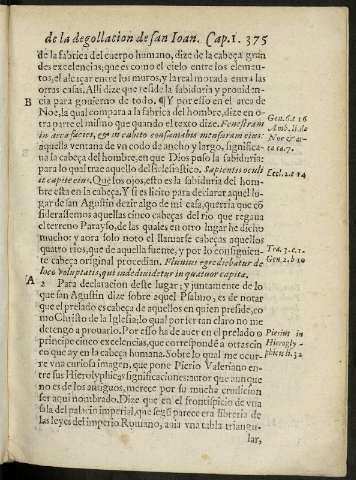 de la degollacion de san Ioan. Cap.1. 375
de la fabrica del cuerpo humano, dize de la cabeça gran
des excelencias, que es como el cielo entre los elemen-
tos, el alcaçar entre los muros, y la real morada entra las
otras casas. Alli dize que reside la sabiduria y prouiden-
cia para gouierno de todo. ¶ Y por esso en el arca de
B
Noe, la qual compara a la fabrica del hombre, dize en o-
Gen.6.c 16
tra parte el mismo que quando el texto dize. Fenestram
Amb. li. de
in arca facies, & in cubito consumabis mensuram eius:
Noe & ar-
aquella ventana de vn codo de ancho y largo, significa-
ca.ca.7.
ua la cabeça del hombre, en que Dios puso la sabiduria:
para lo qual trae aquello del Eclesiastico. Sapientis oculi
Eccl. 2.c 14
in capite eius. Que los ojos, esto es la sabiduria del hom-
bre esta en la cabeça. Y si es licito para declarar aquel lu-
gar de san Agustin dezir algo de mi casa, querria que cõ
siderassemos aquellas cinco cabeças del rio que regaua
el terreno Parayso, de las quales en otro lugar he dicho
mucho: y aora solo noto el llamarse cabeças aquellos
quatro rios, que de aquella fuente, y por lo consiguien-
te cabeça original procedian. Fluuius egrediebatur de
Gen.2.b 10
loco voluptatis, qui inde diuidetur in quatuor capita.
A
2 Para declaracion deste lugar; y juntamente de lo
que san Agustin dize sobre aquel Psalmo, es de notar
que el prelado es cabeça de aquellos en quien preside, co
mo Christo de la Iglesia: lo qual por ser tan claro no me
detengo a prouarlo. Por esso ha de auer en el prelado o
Pierius in
principe cinco excelencias, que corresponde a otras cin
Hierogly-
co en que ay en la cabeça humana. Sobre lo qual me ocur-
phicis li.32
re vna curiosa imagen, que pone Pierio Valeriano en-
tre sus Hieroglyphicas significaciones: autor que aunque
no es de los antiguos, merece por su mucha erudicion
ser aqui nombrado. Dize que en el frontispicio de vna
sala del palacio imperial, que segũ parece era libreria de
las leyes del imperio Romano, auia vna tabla triangu-
lar,